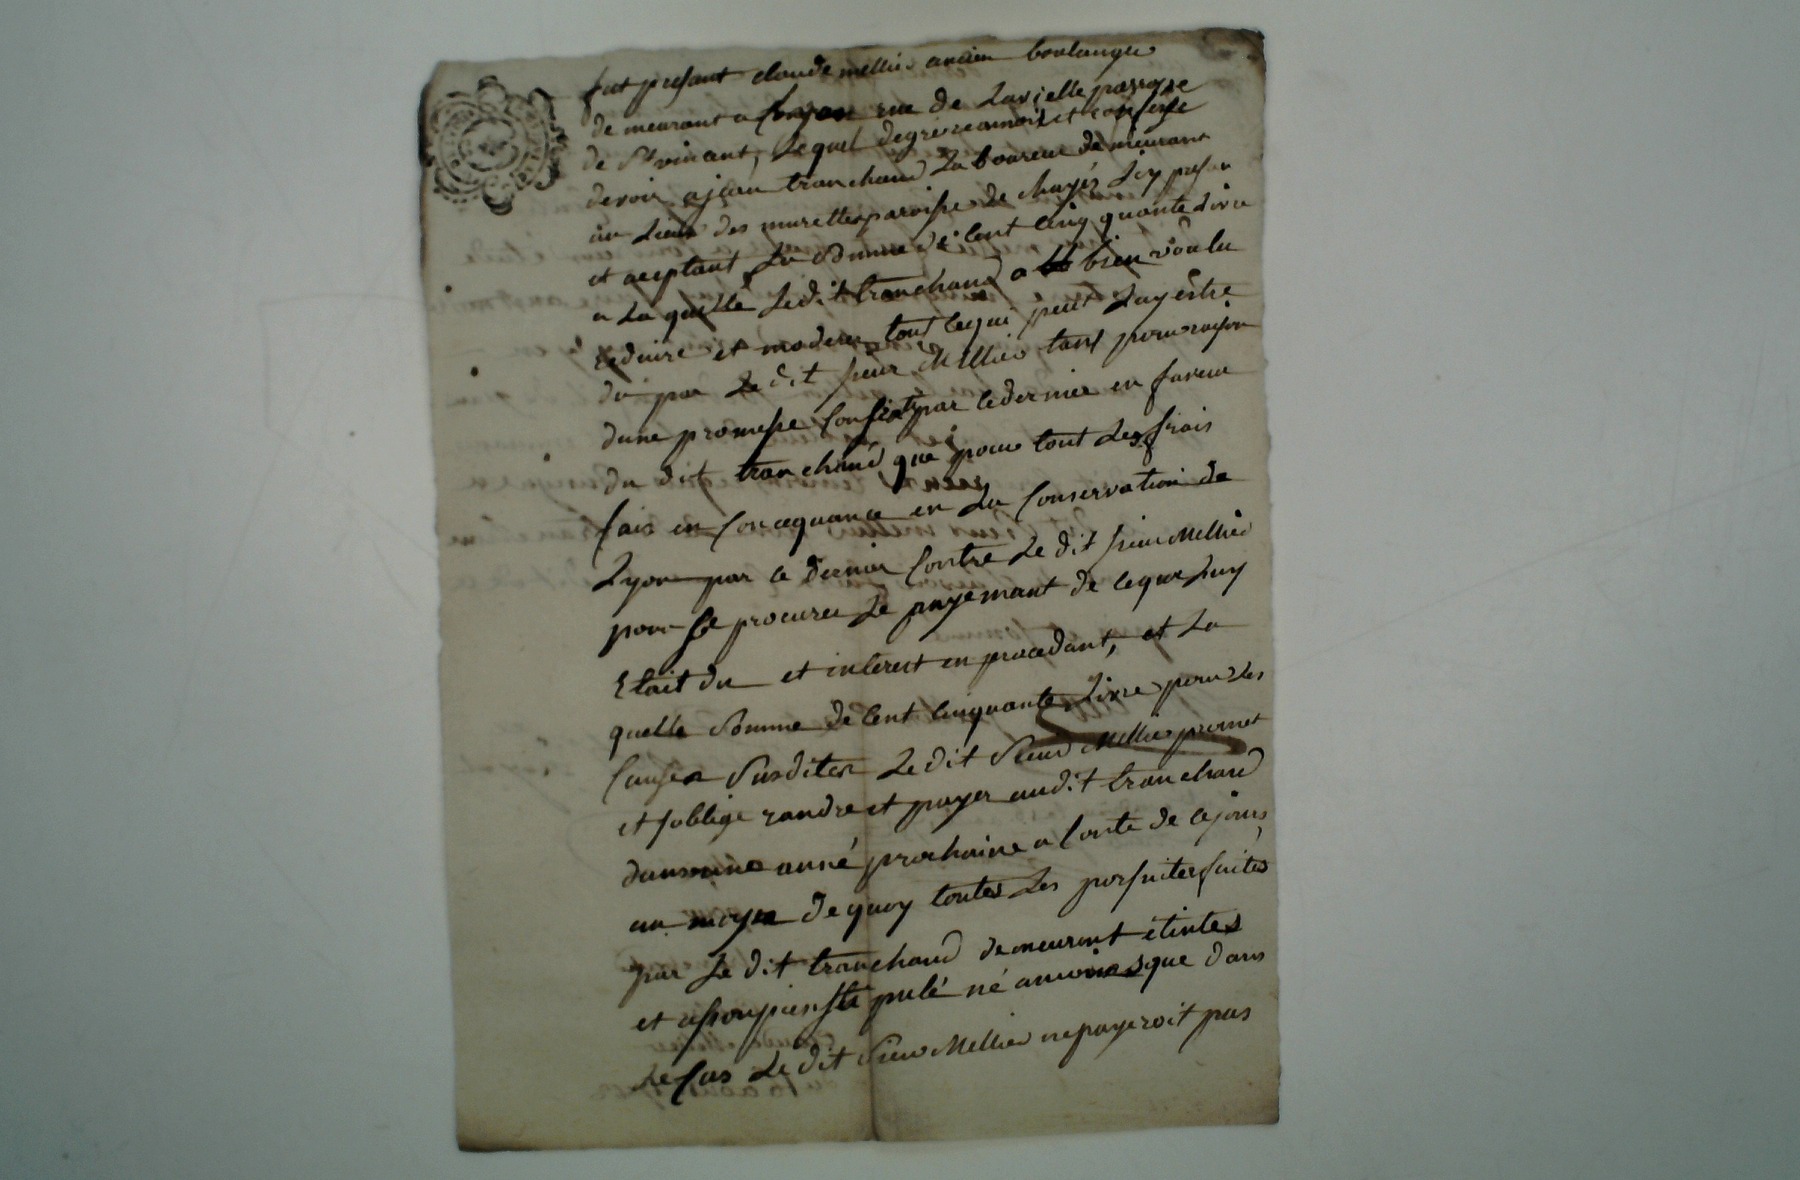 fut presant claude mellier ancien boulanger
de meurant a Lyon rue de Lavielle paroisse
de St vincent, Lequel degré reconnoit et confesse
devoir a jean tranchand Laboureur demeurant
au Lieu des murettes paroisse de Icy presen
et aceptant La Somme de Cent Cinquante Livre
a La quelle Ledit tranchand a bien voulu
reduire et moderer tout cequi peut Luy estre
du par Le dit sieur Mellier tant pour raison
dune promesse par cedernier en faveur
du dit tranchand que pour tout Les frais
fais en Concequance en La Conservation de
Lyon par ce dernier Contre Le dit sieur Mellier
pour se procurer Le payemant de ceque Luy
Etait du et interest en procedant, et La
quelle Somme de Cent Cinquante Livre pour Les
Causes Susdites Le dit Sieur Mellier promet
et soblige randre et payer audit tranchand
dans une anné prochaine a Conte de cejour,
au moyen de quoy toutes Les porsuites faites
par Le dit tranchand demeuront etintes
et assoupies stipulé né anmoins que dans
Le Cas Le dit Sieur Mellier ne payeroit pas